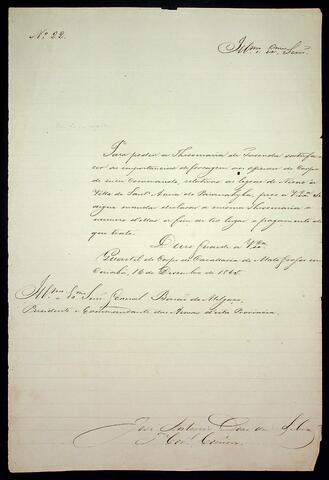 Nº 22.
Illmo. Exmo. Senr.
Para poder a Thesouraria de Fazenda satisfa-
zer as importancias de forragem aos officiaes do Corpo
de meu Commando, relativas as legoas de Nioac a
Villa de Sant'Anna do Paranahyba, peço a V. Exa. se
digne mandar declarar a mesma Thesouraria o
numero d'ellas a fim de ter logar o pagamento de
que trata.
Deus Guarde a V. Exa.
Quartel do Corpo de Cavallaria de Mato Grosso em
Cuiabá, 16 de Dezembro de 1865.
Illmo. e Exmo. Senr. General Barão de Melgaço
Presidente e Commandante das Armas desta Provincia.
José Antonio da Silva